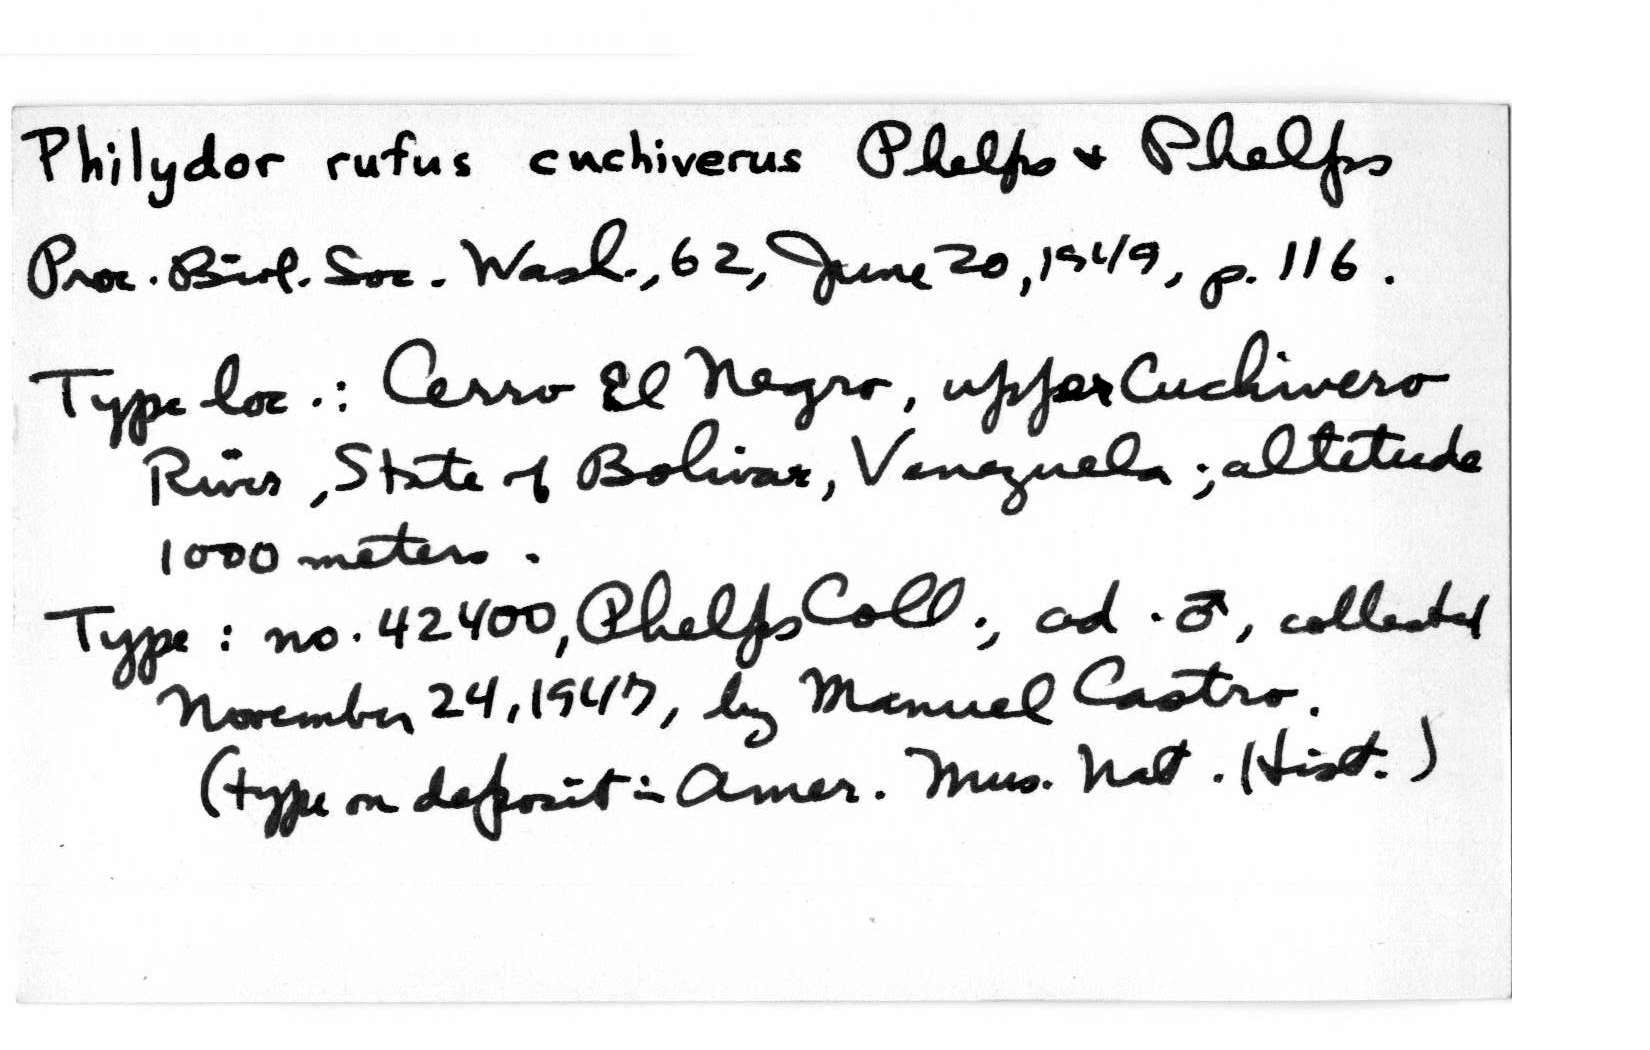 Philydor rufus cuchiverus Phelps & Phelps
Proc. Biol. Soc. Wash., 62, June 20, 1949, p. 116.
Type loc.: Cerro El Negro, upper Cuchivero
River, State of Bolivar, Venezuela; altitude
1000 meters.
Type: no. 42400, Phelps Coll.; ad. ♂, collected
November 24, 1947, by Manuel Castro.
(type on deposit in Amer. Mus. Nat. Hist.)